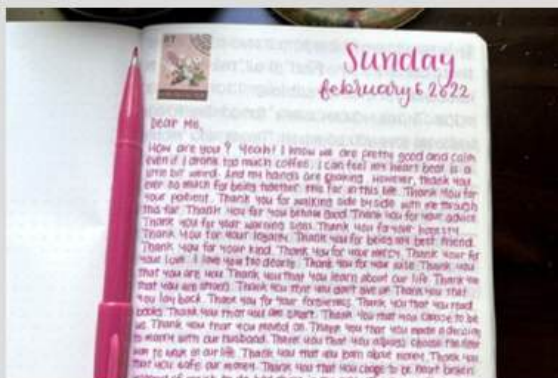 Sunday
february 6 2022
Dear Me,
How are you? Yeah! I know we are pretty good and calm
even if I drank too much coffee. I can feel my heart beat is a
little bit weird. And my hands are shaking. However, thank you
ever so much for being together this far in this life. Thank you for
your patient. Thank you for walking side by side with me through
this far. Thank you for you behave good. Thank you for your advice.
Thank you for your warning signs. Thank you for your honesty.
Thank you for your loyalty. Thank you for being my best friend.
Thank you for your kind. Thank you for your mercy. Thank your for
your love. I love you too dearly. Thank you for your wise. Thank you
that you are you. Thank you that you learn about our life. Thank you
that you are strong. Thank you that you don't give up. Thank you that
you lay back. Thank you for your forgiveness. Thank you that you read
books. Thank you that you are smart. Thank you that you choose to be
us. Thank you that you moved on. Thank you that you made a decision
to marry with our husband. Thank you that you always choose the
way to work on our life. Thank you that you earn about money. Thank you
that you safe our money. Thank you that you choose to be heart broken